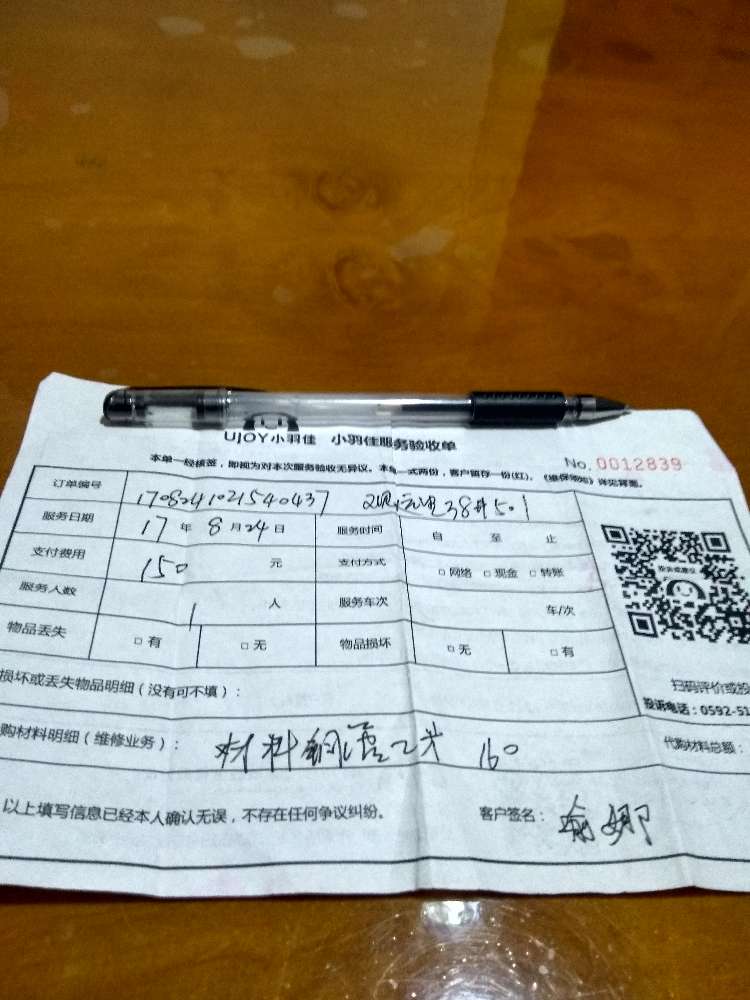 UJOY小羽佳 小羽佳服务验收单
本单一经核签，即视为对本次服务验收无异议。本 一式两份，客户留存一份(红)。 详见背面。
No. 0012839
订单编号 1708241021540437 38#501
服务日期 17 年 8 月 24 日 服务时间 自 至 止
支付费用 150 元 支付方式 □ 网络 □ 现金 □ 转账
服务人数 1 人 服务车次 车/次
物品丢失 □ 有 □ 无 物品损坏 □ 无 □ 有
扫码评价或投
投诉电话：0592-51
损坏或丢失物品明细（没有可不填）：
购材料明细（维修业务）： 材料铜管2米 160
代购材料总额：
以上填写信息已经本人确认无误，不存在任何争议纠纷。 客户签名： 俞娜